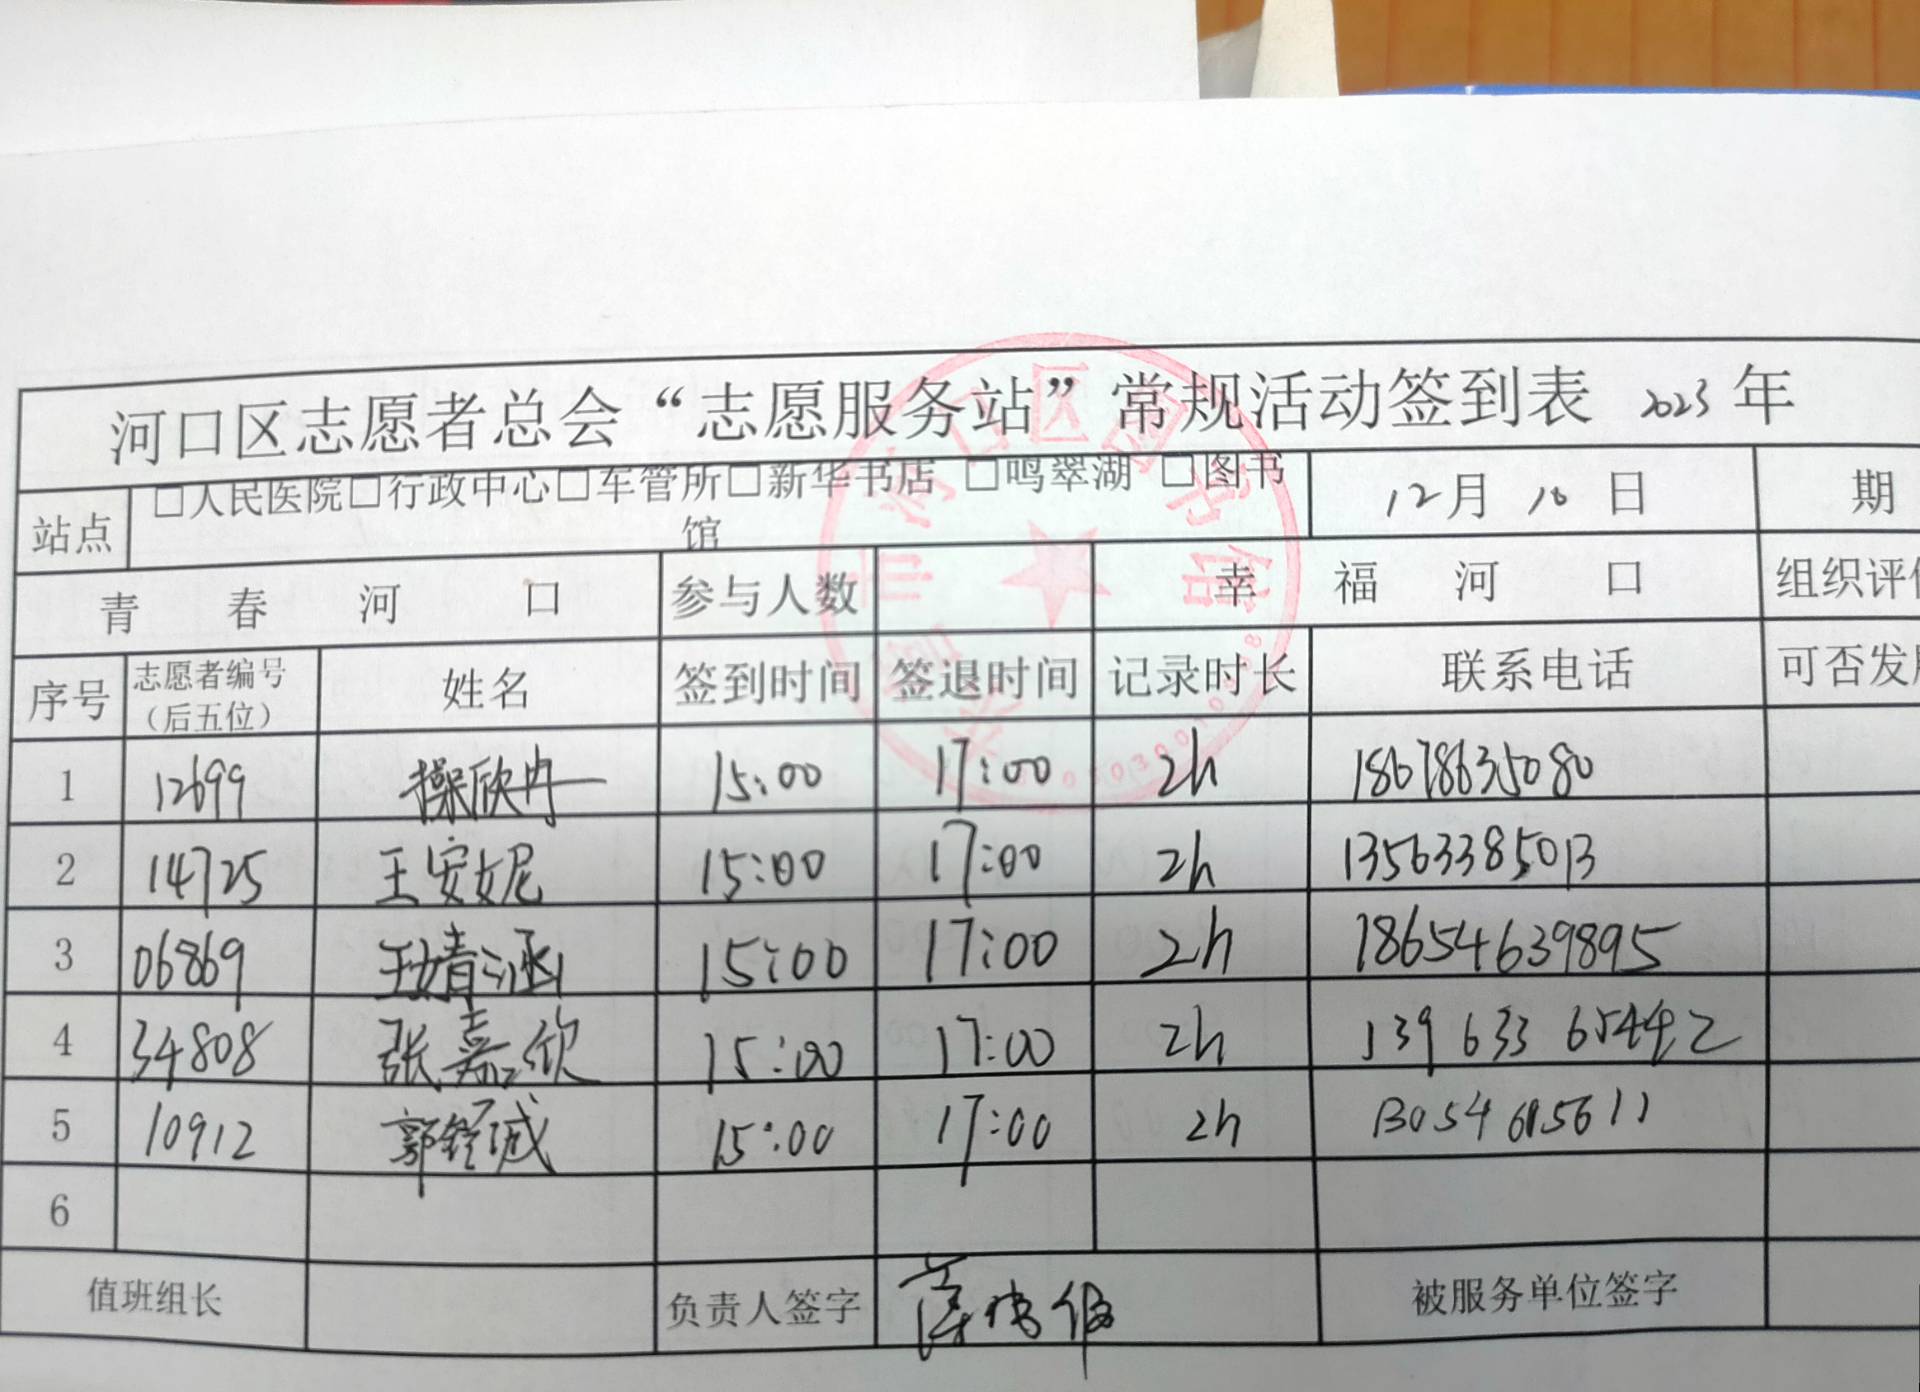 河口区志愿者总会“志愿服务站”常规活动签到表 2023 年
站点 □人民医院□行政中心□车管所□新华书店 □鸣翠湖 □图书馆 12月 10 日 期
青 春 河 口 参与人数 幸 福 河 口 组织评
序号 志愿者编号（后五位） 姓名 签到时间 签退时间 记录时长 联系电话 可否发
1 12699 操欣冉 15:00 17:00 2h 18678635080
2 14725 王安妮 15:00 17:00 2h 13563385013
3 06869 王婧涵 15:00 17:00 2h 18654639895
4 34808 张嘉欣 15:00 17:00 2h 139 633 65442
5 10912 郭铨诚 15:00 17:00 2h 13054615611
6
值班组长 负责人签字 被服务单位签字